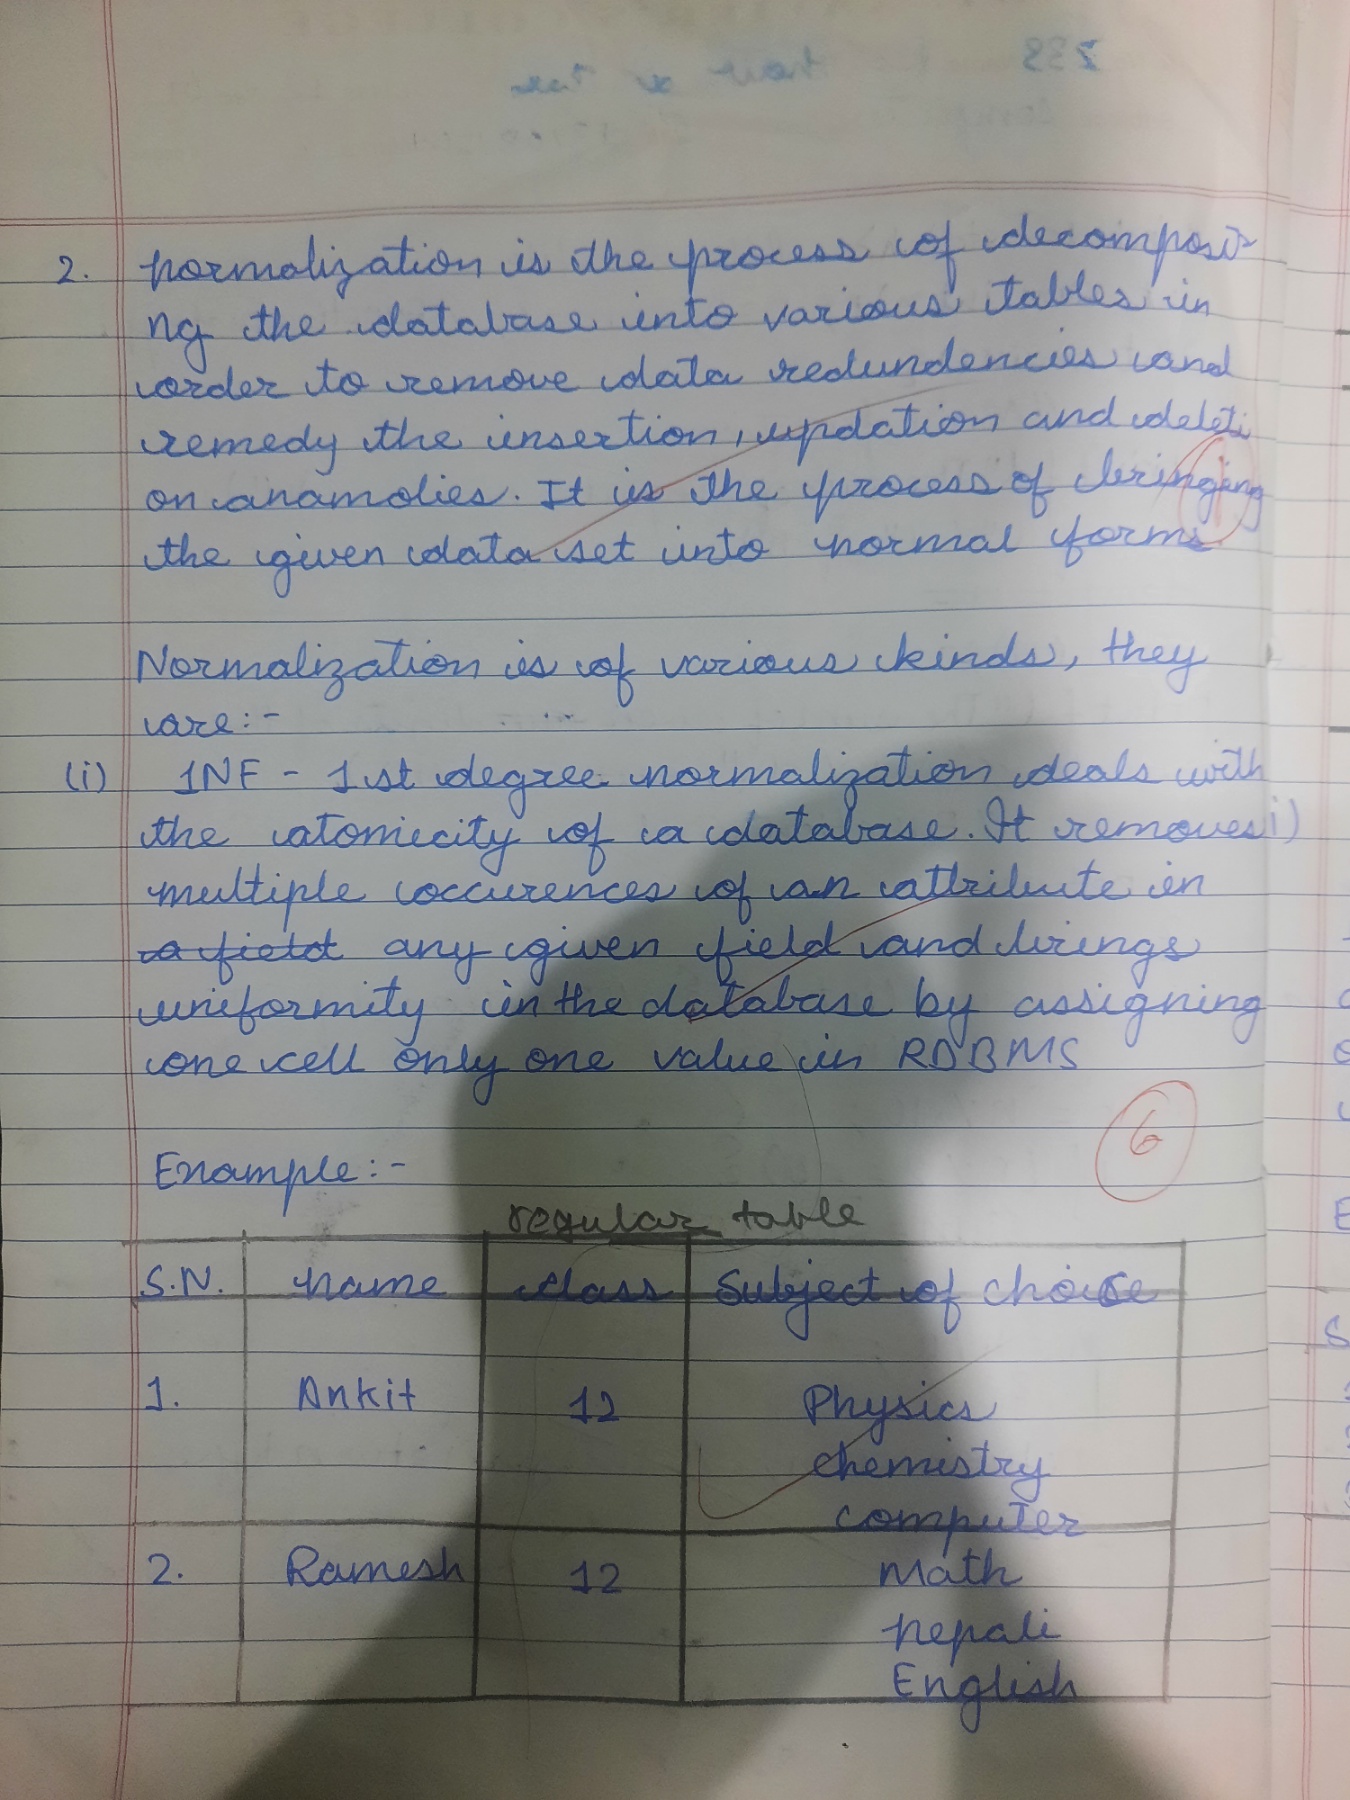 2. normalization is the process of decomposi
ng the database into various tables in
order to remove data redundencies and
remedy the insertion, updation and deleti
on anamolies. It is the process of bringing
the given data set into normal forms
Normalization is of various kinds, they
are:-
(i) 1NF - 1st degree normalization deals with
the atomicity of a database. It removes
multiple occurences of an attribute in
a field any given field and brings
uniformity in the database by assigning
one cell only one value in RDBMS
6
Example:-
regular table
S.N. name class Subject of choice
1. Ankit 12 Physics
chemistry
computer
2. Ramesh 12 Math
nepali
English